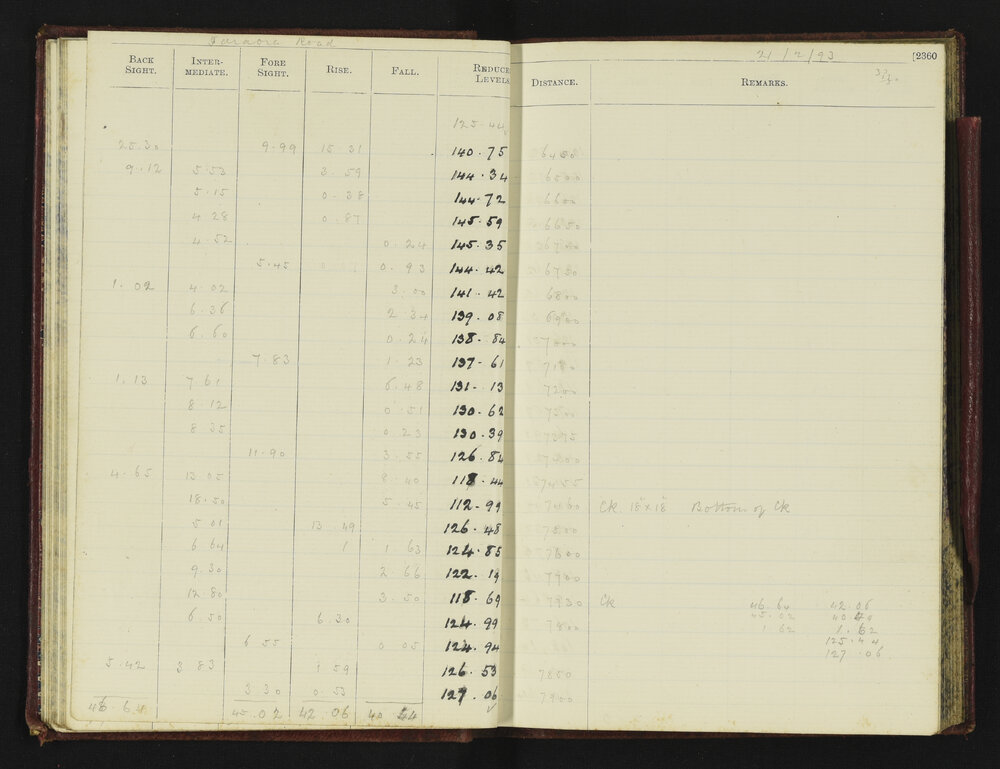 Road 21/2/93 [2360
BACK SIGHT. INTER-MEDIATE. FORE SIGHT. RISE. FALL. REDUCE LEVELS DISTANCE. REMARKS.
125.44
25.30 9.99 15.31 140.75
9.12 5.53 3.59 144.34 6500
5.15 0.38 144.72 6600
4.28 0.87 145.59 6650
4.52 0.24 145.35 6700
5.45 0.93 144.42 6750
1.02 4.02 3.00 141.42 6800
6.36 2.34 139.08 6900
6.60 0.24 138.84 7000
7.83 1.23 137.61
1.13 7.61 6.48 131.13 7200
8.12 0.51 130.62
8.35 0.23 130.39
11.90 3.55 126.84
4.65 13.05 8.40 118.44
18.50 5.45 112.99 Ck 18"x18" Bottom of Ck
5.01 13.49 126.48
6.64 1.63 124.85
9.30 2.66 122.19
12.80 3.50 118.69 Ck 46.64 42.06
6.50 6.30 124.99 7800 45.02 40.44
6.55 0.05 124.94 1.62 1.62
125.44
5.42 3.83 1.59 126.53 7850 127.06
3.30 0.53 127.06 7900
46.64 45.02 42.06 40.44